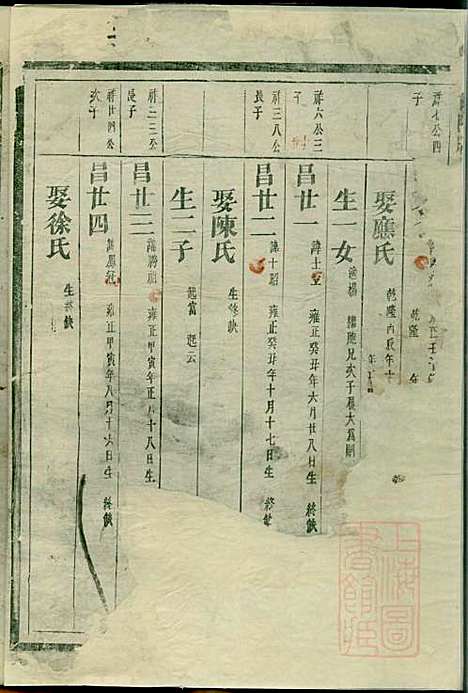 祥七公四
子
娶應氏
乾隆丙辰年十
生一女
適楊
繼胞兄次子根大為嗣
祥六公三
子
昌廿一
諱士
雍正癸丑年六月廿八日生
終缺
祥三八公
長子
昌廿二
諱十昭
雍正癸丑年十月十七日生
終缺
娶陳氏
生終缺
生二子
起富
起云
祥三三公
長子
昌廿三
諱
雍正甲寅年正月十八日生
祥廿四公
次子
昌廿四
雍正甲寅年八月十六日生
終缺
娶徐氏
生終缺
上海圖書館藏